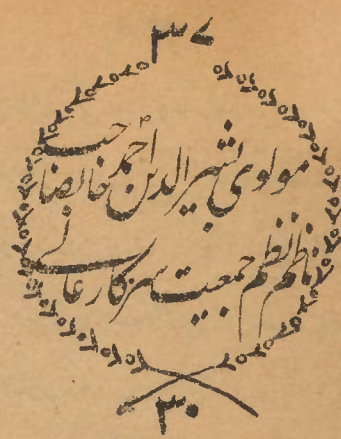 ۳۷
مولوی بشیر الدین احمد خانصاحب
ناظم نظم جمعیت سرکار عالی
۳۰